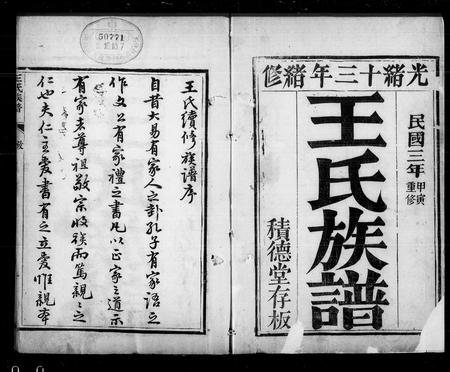 光緒十三年續修
民國三年甲寅重修
王氏族譜
積德堂存板
王氏續修族譜序
自昔大易有家人之卦孔子有家語之
作文公有家禮之書凡以正家之道示
有家者尊祖敬宗收族而篤親親之
仁也夫仁主愛書有之立愛惟親本
王氏族譜
50771